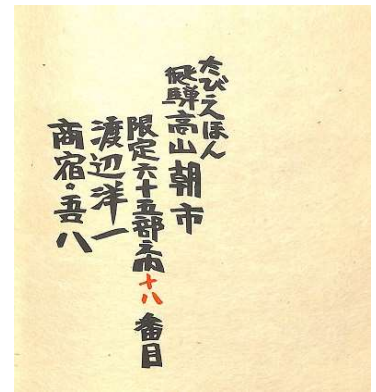 たびえほん
飛騨高山朝市
限定六十五部之内十八番目
渡辺洋一
商宿・吾八